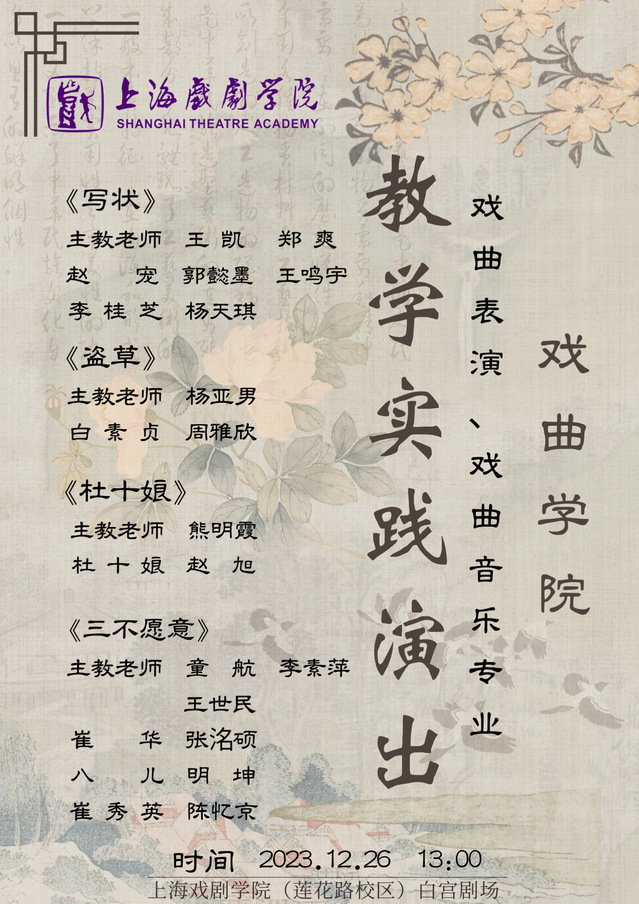 上海戲劇学院
SHANGHAI THEATRE ACADEMY
戏曲学院
戏曲表演、戏曲音乐专业
教学实践演出
《写状》
主教老师 王凯 郑爽
赵宠 郭懿墨 王鸣宇
李桂芝 杨天琪
《盗草》
主教老师 杨亚男
白素贞 周雅欣
《杜十娘》
主教老师 熊明霞
杜十娘 赵旭
《三不愿意》
主教老师 童航 李素萍
王世民
崔华 张洺硕
八儿 明坤
崔秀英 陈忆京
时间 2023.12.26 13:00
上海戏剧学院（莲花路校区）白宫剧场